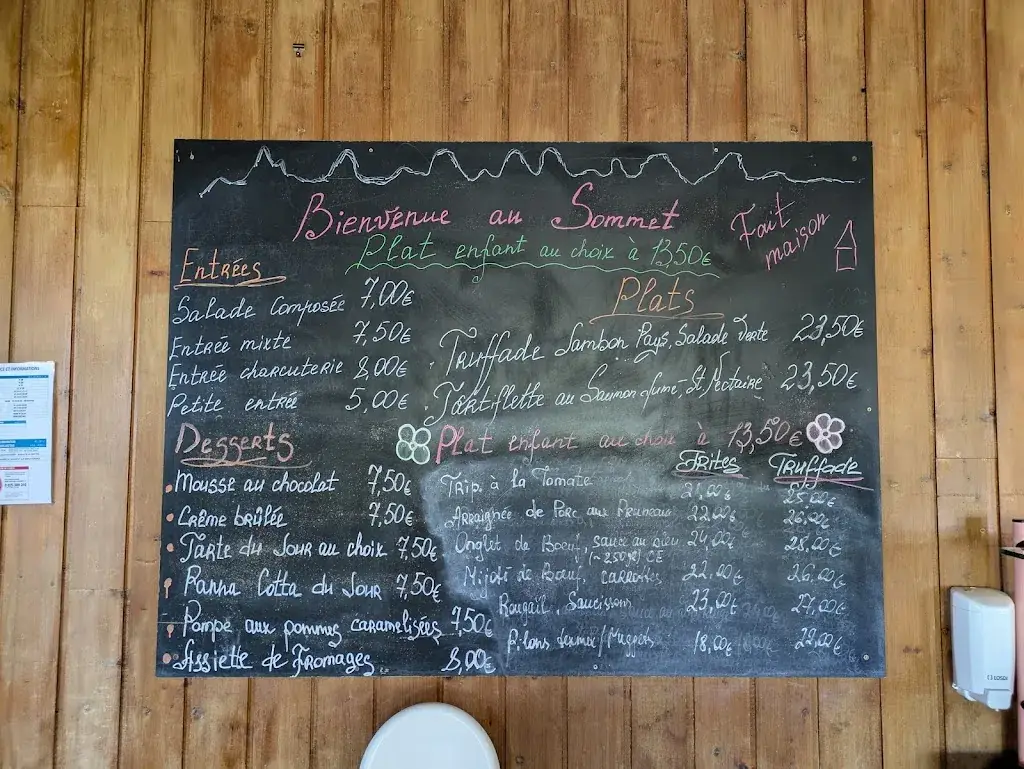 Bienvenue au Sommet
Fait maison
Plat enfant au choix à 13,50€
Entrées
Salade Composée 7,00€
Entrée mixte 7,50€
Entrée charcuterie 8,00€
Petite entrée 5,00€
Desserts
Mousse au chocolat 7,50€
Crême brûlée 7,50€
Tarte du Jour au choix 7,50€
Panna Cotta du Jour 7,50€
Pompe aux pommes caramelisées 7,50€
Assiette de Fromages 8,00€
Plats
Truffade Jambon Pays, Salade Verte 23,50€
Tartiflette au Saumon fumé-St. Nectaire 23,50€
Plat enfant au choix à 13,50€
Frites Truffade
Trip. à la Tomate 21,00€ 25,00€
Arraignée de Porc aux Pruneaux 22,00€ 26,00€
Onglet de Boeuf, sauce au bleu 24,00€ 28,00€
(~250gr) CE
Mijoté de Boeuf, carottes 22,00€ 26,00€
Rougail, Saucisson 23,00€ 27,00€
18,00€ 22,00€